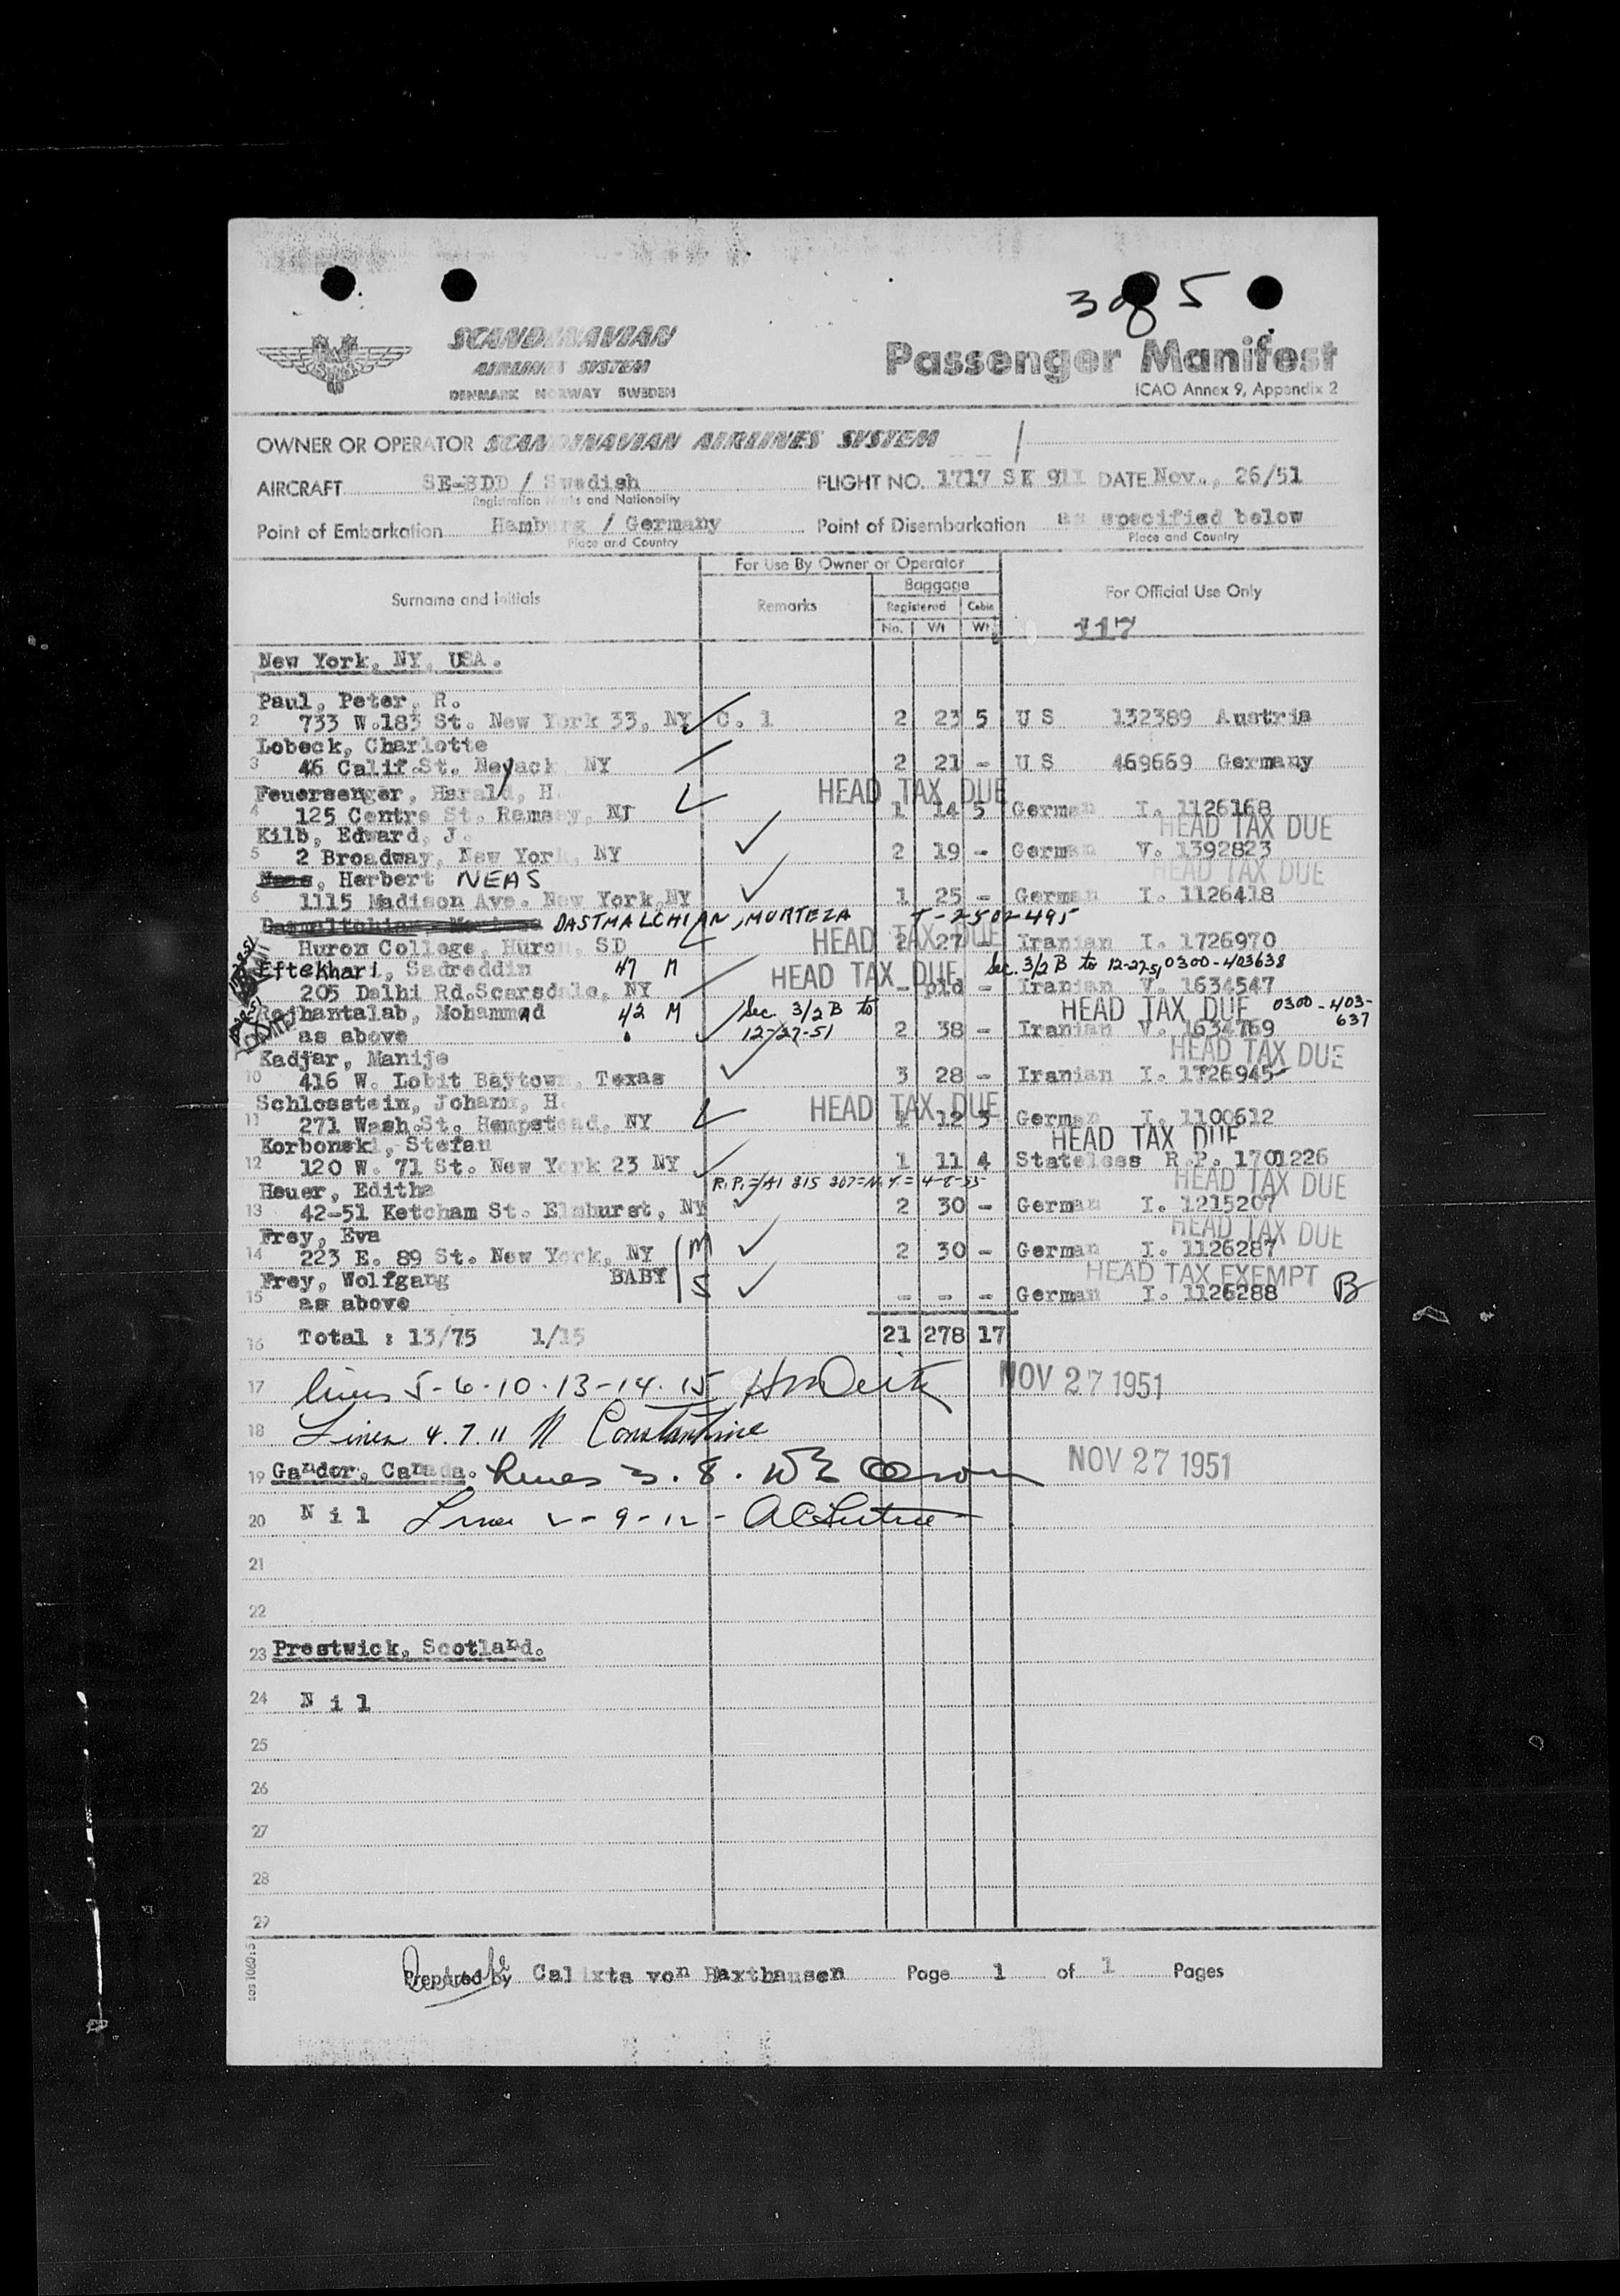 3 of 5
SCANDINAVIAN
AIRLINES SYSTEM
DENMARK NORWAY SWEDEN
Passenger Manifest
ICAO Annex 9, Appendix 2
OWNER OR OPERATOR SCANDINAVIAN AIRLINES SYSTEM
AIRCRAFT SE-BDD / Swedish FLIGHT NO. 1717 SK 911 DATE Nov., 26/51
Registration Marks and Nationality
Point of Embarkation Hamburg / Germany Point of Disembarkation as specified below
Place and Country Place and Country
For Use By Owner or Operator
Surname and Initials Remarks Baggage For Official Use Only
Registered Cabin
No. Wt Wt
117
New York, NY, USA.
1
Paul, Peter, R.
2 733 W.183 St. New York 33, NY C. 1 2 23 5 U S 132389 Austria
Lobeck, Charlotte
3 46 Calif.St. Neyack NY 2 21 - U S 469669 Germany
Feuersenger, Harald, H. HEAD TAX DUE
4 125 Centre St. Ramsey, NJ 1 14 5 German I. 1126168
Kilb, Edward, J. HEAD TAX DUE
5 2 Broadway, New York, NY 2 19 - German V. 1392823
Herbert NEAS HEAD TAX DUE
6 1115 Madison Ave. New York,NY 1 25 - German I. 1126418
DASTMALCHIAN, MORTEZA T-2502495
Huron College, Huron, SD HEAD TAX DUE 2 27 - Iranian I. 1726970
Eftekhari, Sadreddin 47 M HEAD TAX DUE Sec. 3/2 B to 12-27-51 0300-403638
205 Dalhi Rd.Scarsdale, NY - pld - Iranian V. 1634547
Rajhantalab, Mohammad 42 M Sec 3/2 B to HEAD TAX DUE 0300-403-637
as above 12-27-51 2 38 - Iranian V. 1634769
Kadjar, Manije HEAD TAX DUE
10 416 W. Lobit Baytown, Texas 3 28 - Iranian I. 1726945
Schlosstein, Johann, H. HEAD TAX DUE
11 271 Wash.St. Hempstead, NY 1 12 3 German I. 1100612
Korbonski, Stefan HEAD TAX DUE
12 120 W. 71 St. New York 23 NY 1 11 4 Stateless R.P. 1701226
Heuer, Editha HEAD TAX DUE
13 42-51 Ketcham St. Elmhurst, NY 2 30 - German I. 1215207
Frey, Eva HEAD TAX DUE
14 223 E. 89 St. New York, NY M 2 30 - German I. 1126287
Frey, Wolfgang BABY S HEAD TAX EXEMPT
15 as above - - - German I. 1126288 B
16 Total : 13/75 1/15 21 278 17
17 Lines 5-6-10-13-14-15 NOV 27 1951
18 Lines 4.7.11 Constantine
19 Gander, Canada. Lines 3.8. NOV 27 1951
20 N i l Lines 2-9-12-
21
22
23 Prestwick, Scotland.
24 N i l
25
26
27
28
29
Prepared by Calixta von Haxthausen Page 1 of 1 Pages